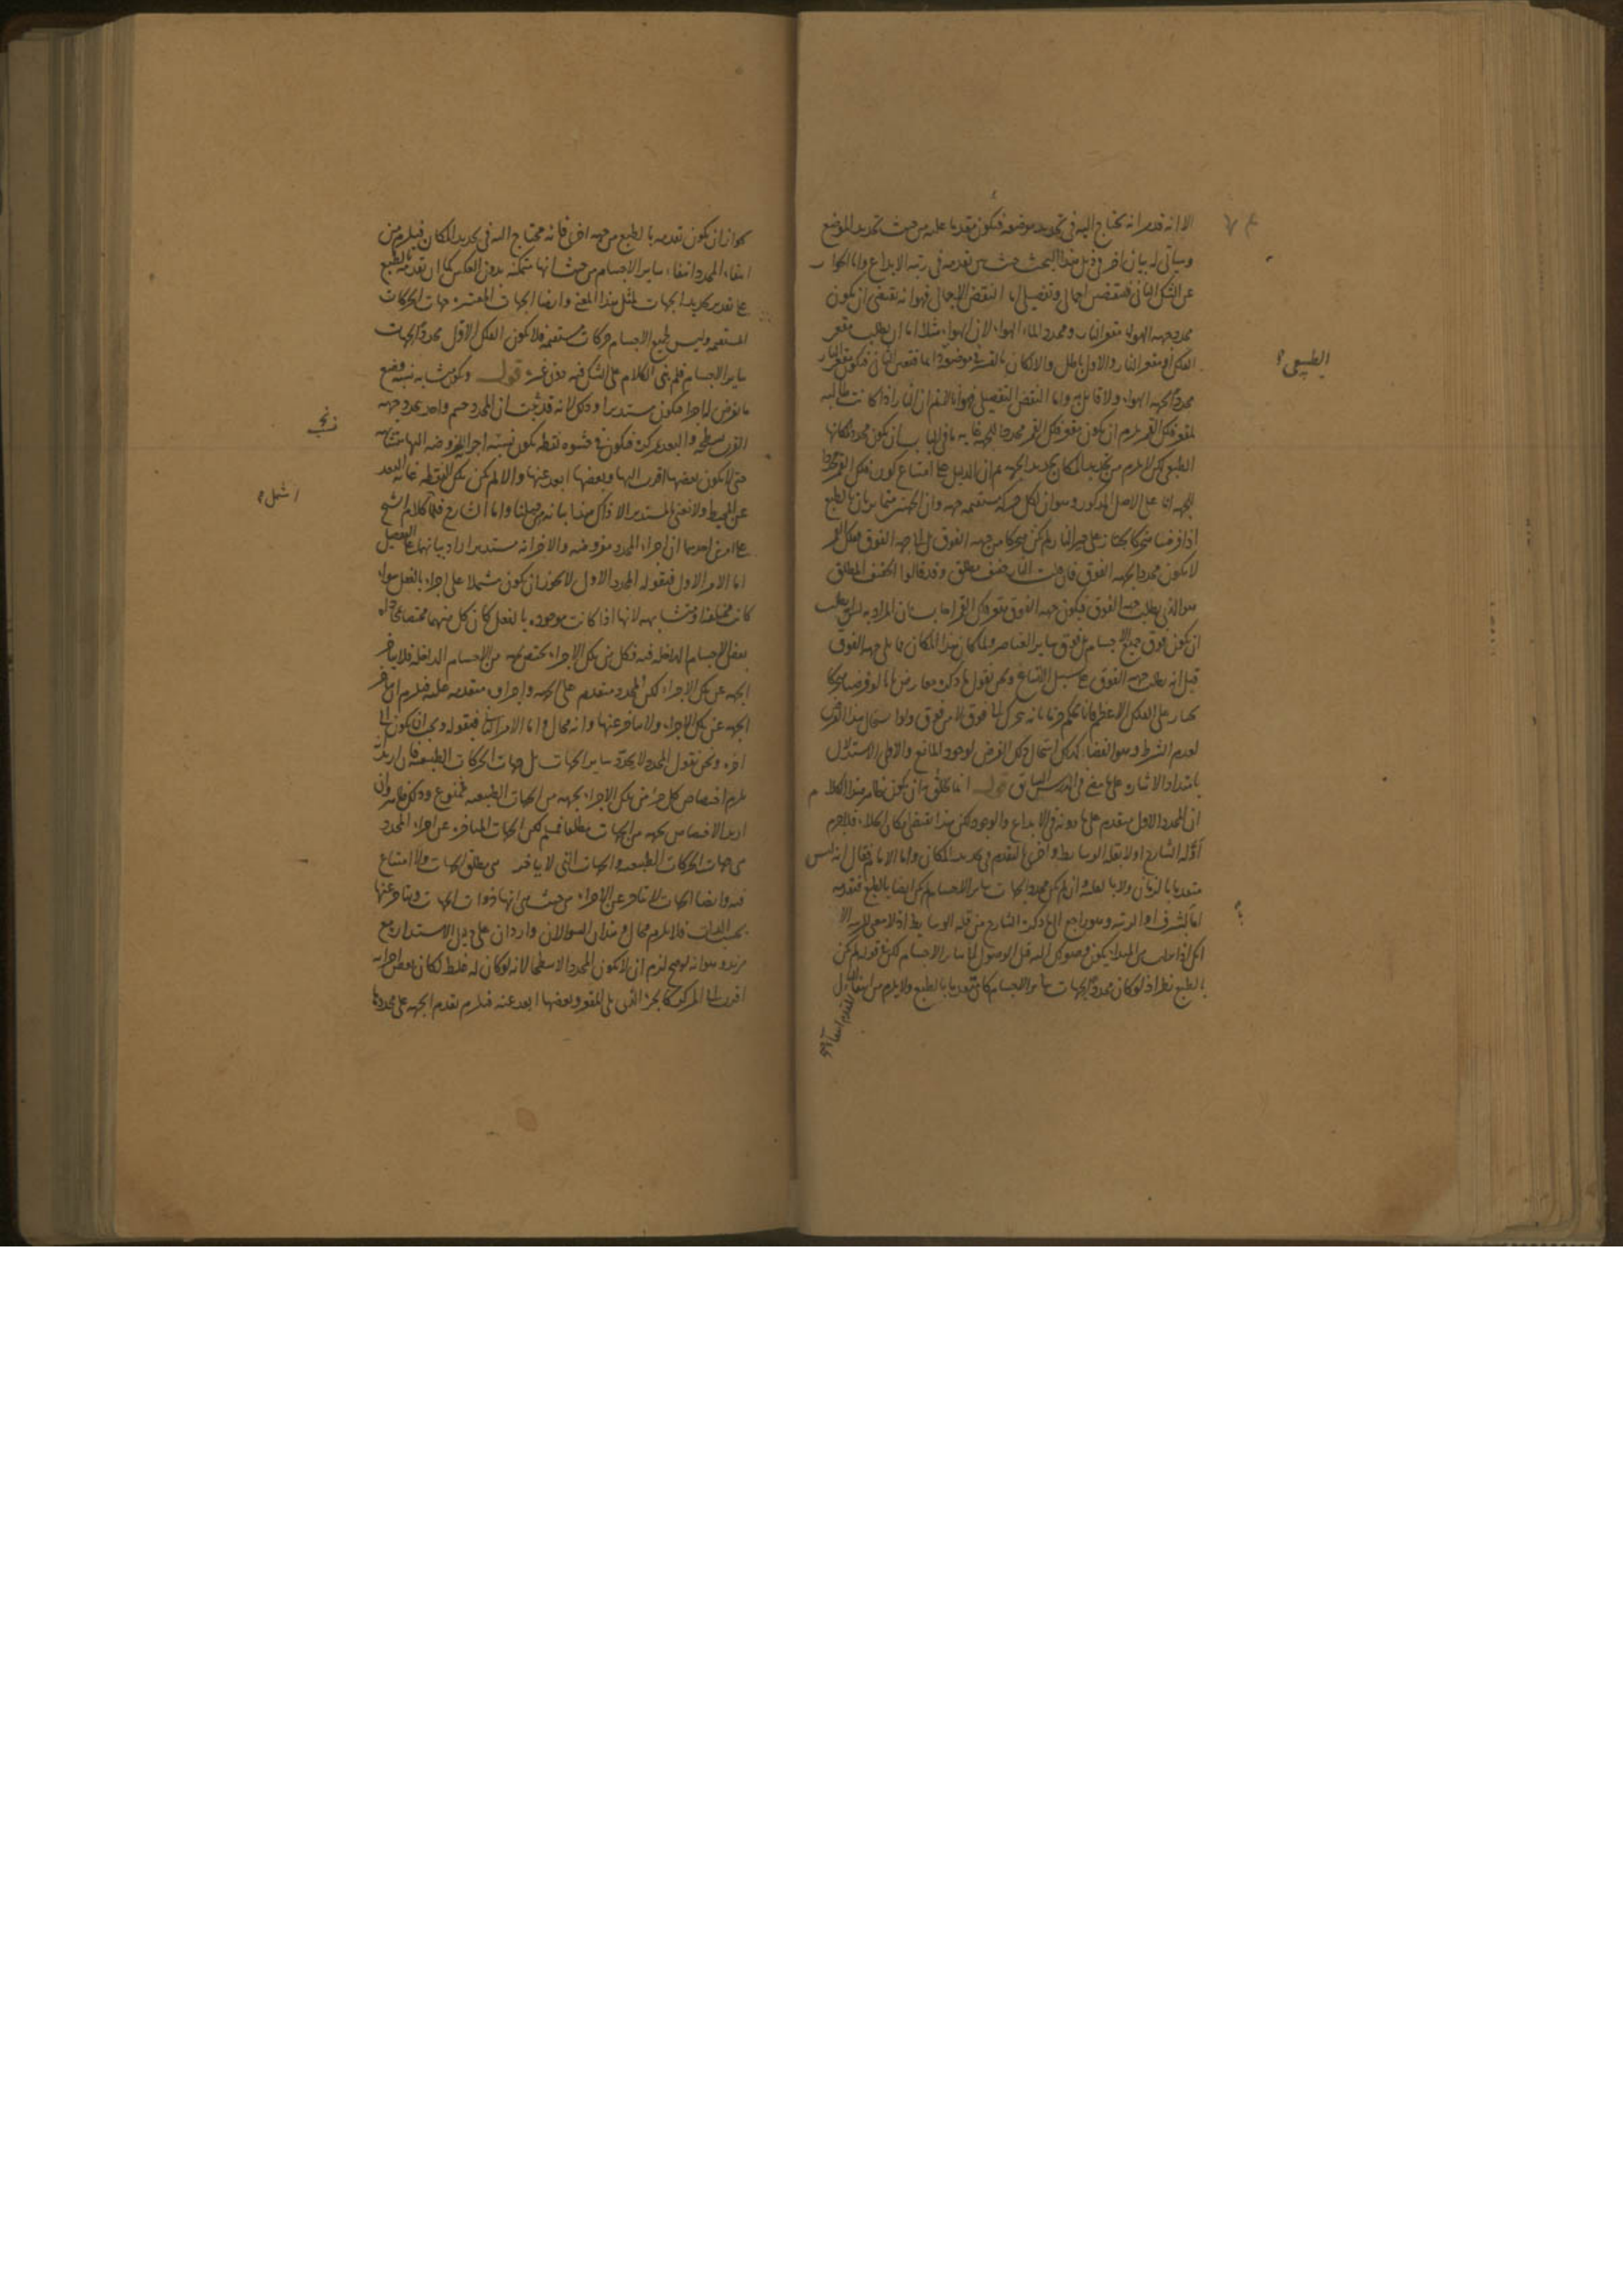 الا انه قدم انه يحتاج اليه فى تحديد موضعه فيكون مقدما عليه من حيث تحديد الموضع
وسيأتى له بيان اخر فى ذيل هذا البحث حيث بين تقدمه فى رتبة الابداع واما الجواب
عن الشك الثانى فنقض اجمالى وتفصيلى اما النقض الاجمالى فهو انه يقتضى ان يكون
محدد جهة الهواء مقعر النار ومحدد الماء الهواء لان الهواء مثلا اما ان يطلب مقعر
الفلك او مقعر النار والاول باطل والا لكان بالقسر فى موضعه
محدد الجهة الهواء ولا قائل به واما النقض التفصيلى فهو انا لا نم ان النار اذا كانت طالبة
لمقعر فلك القمر يلزم ان يكون مقعر فلك القمر محددا للجهة غاية ما فى الباب ان يكون محدد مكانها
الطبيعى لكن لا يلزم من تحديد المكان تحديد الجهة ثم ان الدليل على امتناع كون فلك القمر محددا
للجهة بناء على الاصل المذكور وهو ان لكل حركة مستقيمة جهة وان الجهتين متمايزتان بالطبع
اذا فرضنا متحركا يجتاز على حيز النار لم يكن متحركا من جهة الفوق بل الى جهة الفوق ففلك القمر
لا يكون محددا لجهة الفوق فان قلت النار خفيف مطلق وقد قالوا الخفيف المطلق
هو الذى يطلب جهة الفوق فيكون جهة الفوق مقعر فلك القمر اجاب بان المراد به انه يطلب
ان يكون فوق جميع الاجسام بل فوق سائر العناصر ولما كان هذا المكان مما يلى جهة الفوق
قيل انه يطلب جهة الفوق على سبيل الاتساع ونحن نقول ما ذكره معارض بانا لو فرضنا متحركا
يجتاز على الفلك الاعظم فانا نحكم جزما بانه تحرك الى فوق لا من فوق ولو استحال هذا الفرض
لعدم الشرط وهو الفضاء كذلك استحال ذلك الفرض لوجود المانع والاولى الاستدلال
بامتداد الاشارة على ما مضى فى الدرس السابق قوله انما يتخلق بان يكون ظاهر هذا الكلام
ان المحدد الاول متقدم على ما دونه فى الابداع والوجود لكن هذا يقتضى امكان الخلاء فلا جرم
اوله الشارح اولا بقلة الوسائط واخرى بالتقدم فى تحديد المكان واما الامام فقال انه ليس
متقدما بالزمان ولا بالعلية وان لم يكن محدد الجهات سائر الاجسام لم يكن ايضا بالطبع فتقدمه
اما بالشرف او الرتبة وهو راجع الى ما ذكره الشارح من قلة الوسائط اذ لا معنى للرتبة الا
انك اذا طلبت من المبدأ يكون وصولك اليه قبل الوصول الى سائر الاجسام لكن فى قوله لم يكن
بالطبع نظر اذ لو كان محدد الجهات سائر الاجسام كان متقدما بالطبع ولا يلزم من انتفاء الاول
الطبيعى
جواز ان يكون تقدمه بالطبع من جهة اخرى فانه محتاج اليه فى تحديد المكان فيلزم من
انتفاء المحدد انتفاء سائر الاجسام من حيث انها متمكنة بدون العكس كما ان تقدمه بالطبع
على تقدير تحديد الجهات لمثل هذا المعنى وايضا الجهات المعتبرة جهات الحركات
المستقيمة وليس لجميع الاجسام حركات مستقيمة فلا يكون الفلك الاول محدد الجهات
سائر الاجسام فلم بنى الكلام على الشك فيه دون غيره قوله ويكون متشابه نسبة وضع
ما يفرض له اجزاء فيكون مستديرا وذلك لانه قد ثبت ان المحدد جسم واحد يحدد جهة
القرب بسطحه والبعد بمركزه فيكون فى حشوه نقطة يكون نسبة اجزائه المفروضة اليها متشابهة
حتى لا يكون بعضها اقرب اليها وبعضها ابعد عنها والا لم يكن تلك النقطة غاية البعد
عن المحيط ولا نعنى بالمستدير الا ذاك هذا بيانه من قبلنا واما الشارح فلما كان كلام الشيخ
على امرين احدهما ان اجزاء المحدد مفروضة والاخر انه مستدير اراد بيانهما على التفصيل
اما الامر الاول فبقوله المحدد الاول لا يجوز ان يكون مشتملا على اجزاء بالفعل سواء
كانت مختلفة او متشابهة لانها اذا كانت موجودة بالفعل كان كل منها مختصا بمحاذاة
بعض الاجسام الداخلة فيه فكل من تلك الاجزاء يختص بجهة من الاجسام الداخلة فلا يتاخر
الجهة عن تلك الاجزاء لكن المحدد متقدم على الجهة واجزاؤه متقدمة عليه فيلزم ان يتاخر
الجهة عن تلك الاجزاء ولا يتاخر عنها وانه محال واما الامر الثانى فبقوله ويجب ان يكون الى
اخره ونحن نقول المحدد لا يحدد سائر الجهات بل جهات الحركات الطبيعية فان اريد انه
يلزم اختصاص كل جزء من تلك الاجزاء بجهة من الجهات الطبيعية فممنوع وذلك ظاهر وان
اريد الاختصاص بجهة من الجهات مطلقا فمسلم لكن الجهات المتاخرة عن اجزاء المحدد
هى جهات الحركات الطبيعية والجهات التى لا يتاخر هى مطلق الجهات ولا امتناع
فيه وايضا الجهات لا يتاخر عن الاجزاء من حيث انها ذوات الجهات ويتاخر عنها
بحسب الذات فلا يلزم محال وهذان السؤالان واردان على دليل الاستدارة مع
مزيد وهو انه لو صح لزم ان لا يكون المحدد الا سطحا لانه لو كان له غلظ لكان بعض اجزائه
اقرب الى المركز كالجزء الذى يلى المقعر وبعضها ابعد عنه فيلزم تقدم الجهة على محددها